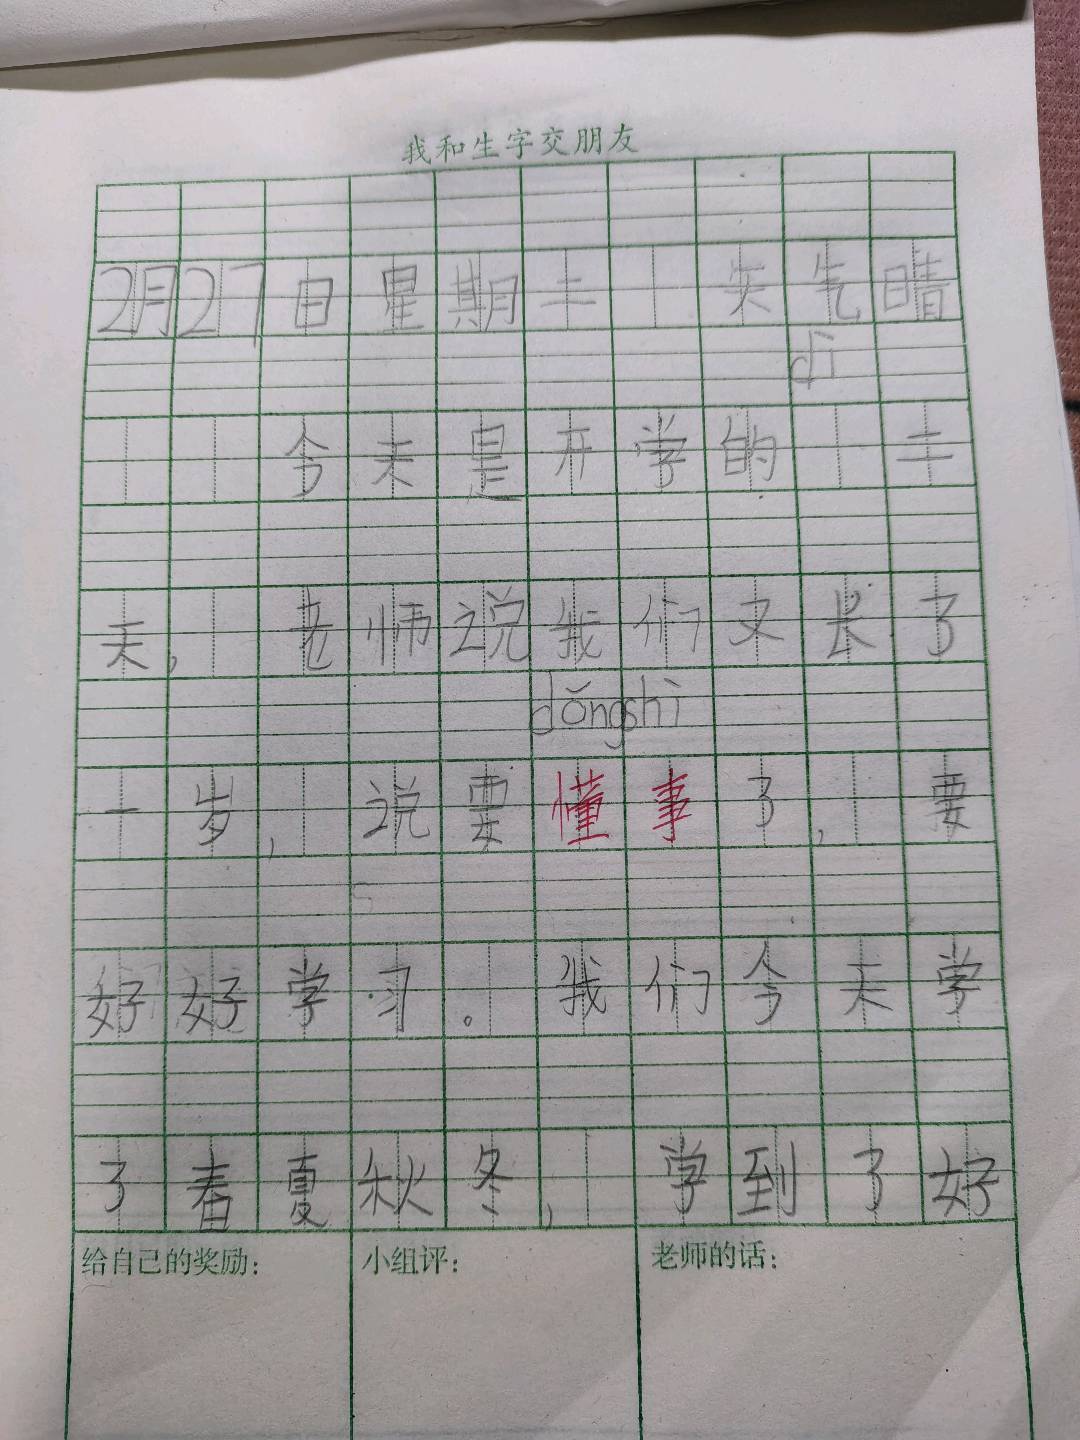 我和生字交朋友
2月27日星期二 天气晴
dì
今天是开学的 二
天, 老师说我们又长了
dǒng shì
一岁, 说要懂事了, 要
好好学习。我们今天学
了春夏秋冬, 学到了好
给自己的奖励: 小组评: 老师的话: